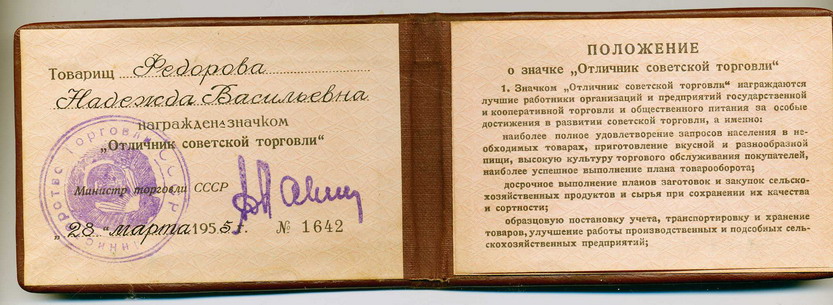 Товарищ Федорова
Надежда Васильевна
награжден а значком
„Отличник советской торговли“
Министр торговли СССР
„28“ марта 1955 г. № 1642
Министерство торговли СССР
ПОЛОЖЕНИЕ
о значке „Отличник советской торговли“
1. Значком „Отличник советской торговли“ награждаются
лучшие работники организаций и предприятий государственной
и кооперативной торговли и общественного питания за особые
достижения в развитии советской торговли, а именно:
наиболее полное удовлетворение запросов населения в не-
обходимых товарах, приготовление вкусной и разнообразной
пищи, высокую культуру торгового обслуживания покупателей,
наиболее успешное выполнение плана товарооборота;
досрочное выполнение планов заготовок и закупок сельско-
хозяйственных продуктов и сырья при сохранении их качества
и сортности;
образцовую постановку учета, транспортировку и хранение
товаров, улучшение работы производственных и подсобных сель-
скохозяйственных предприятий;